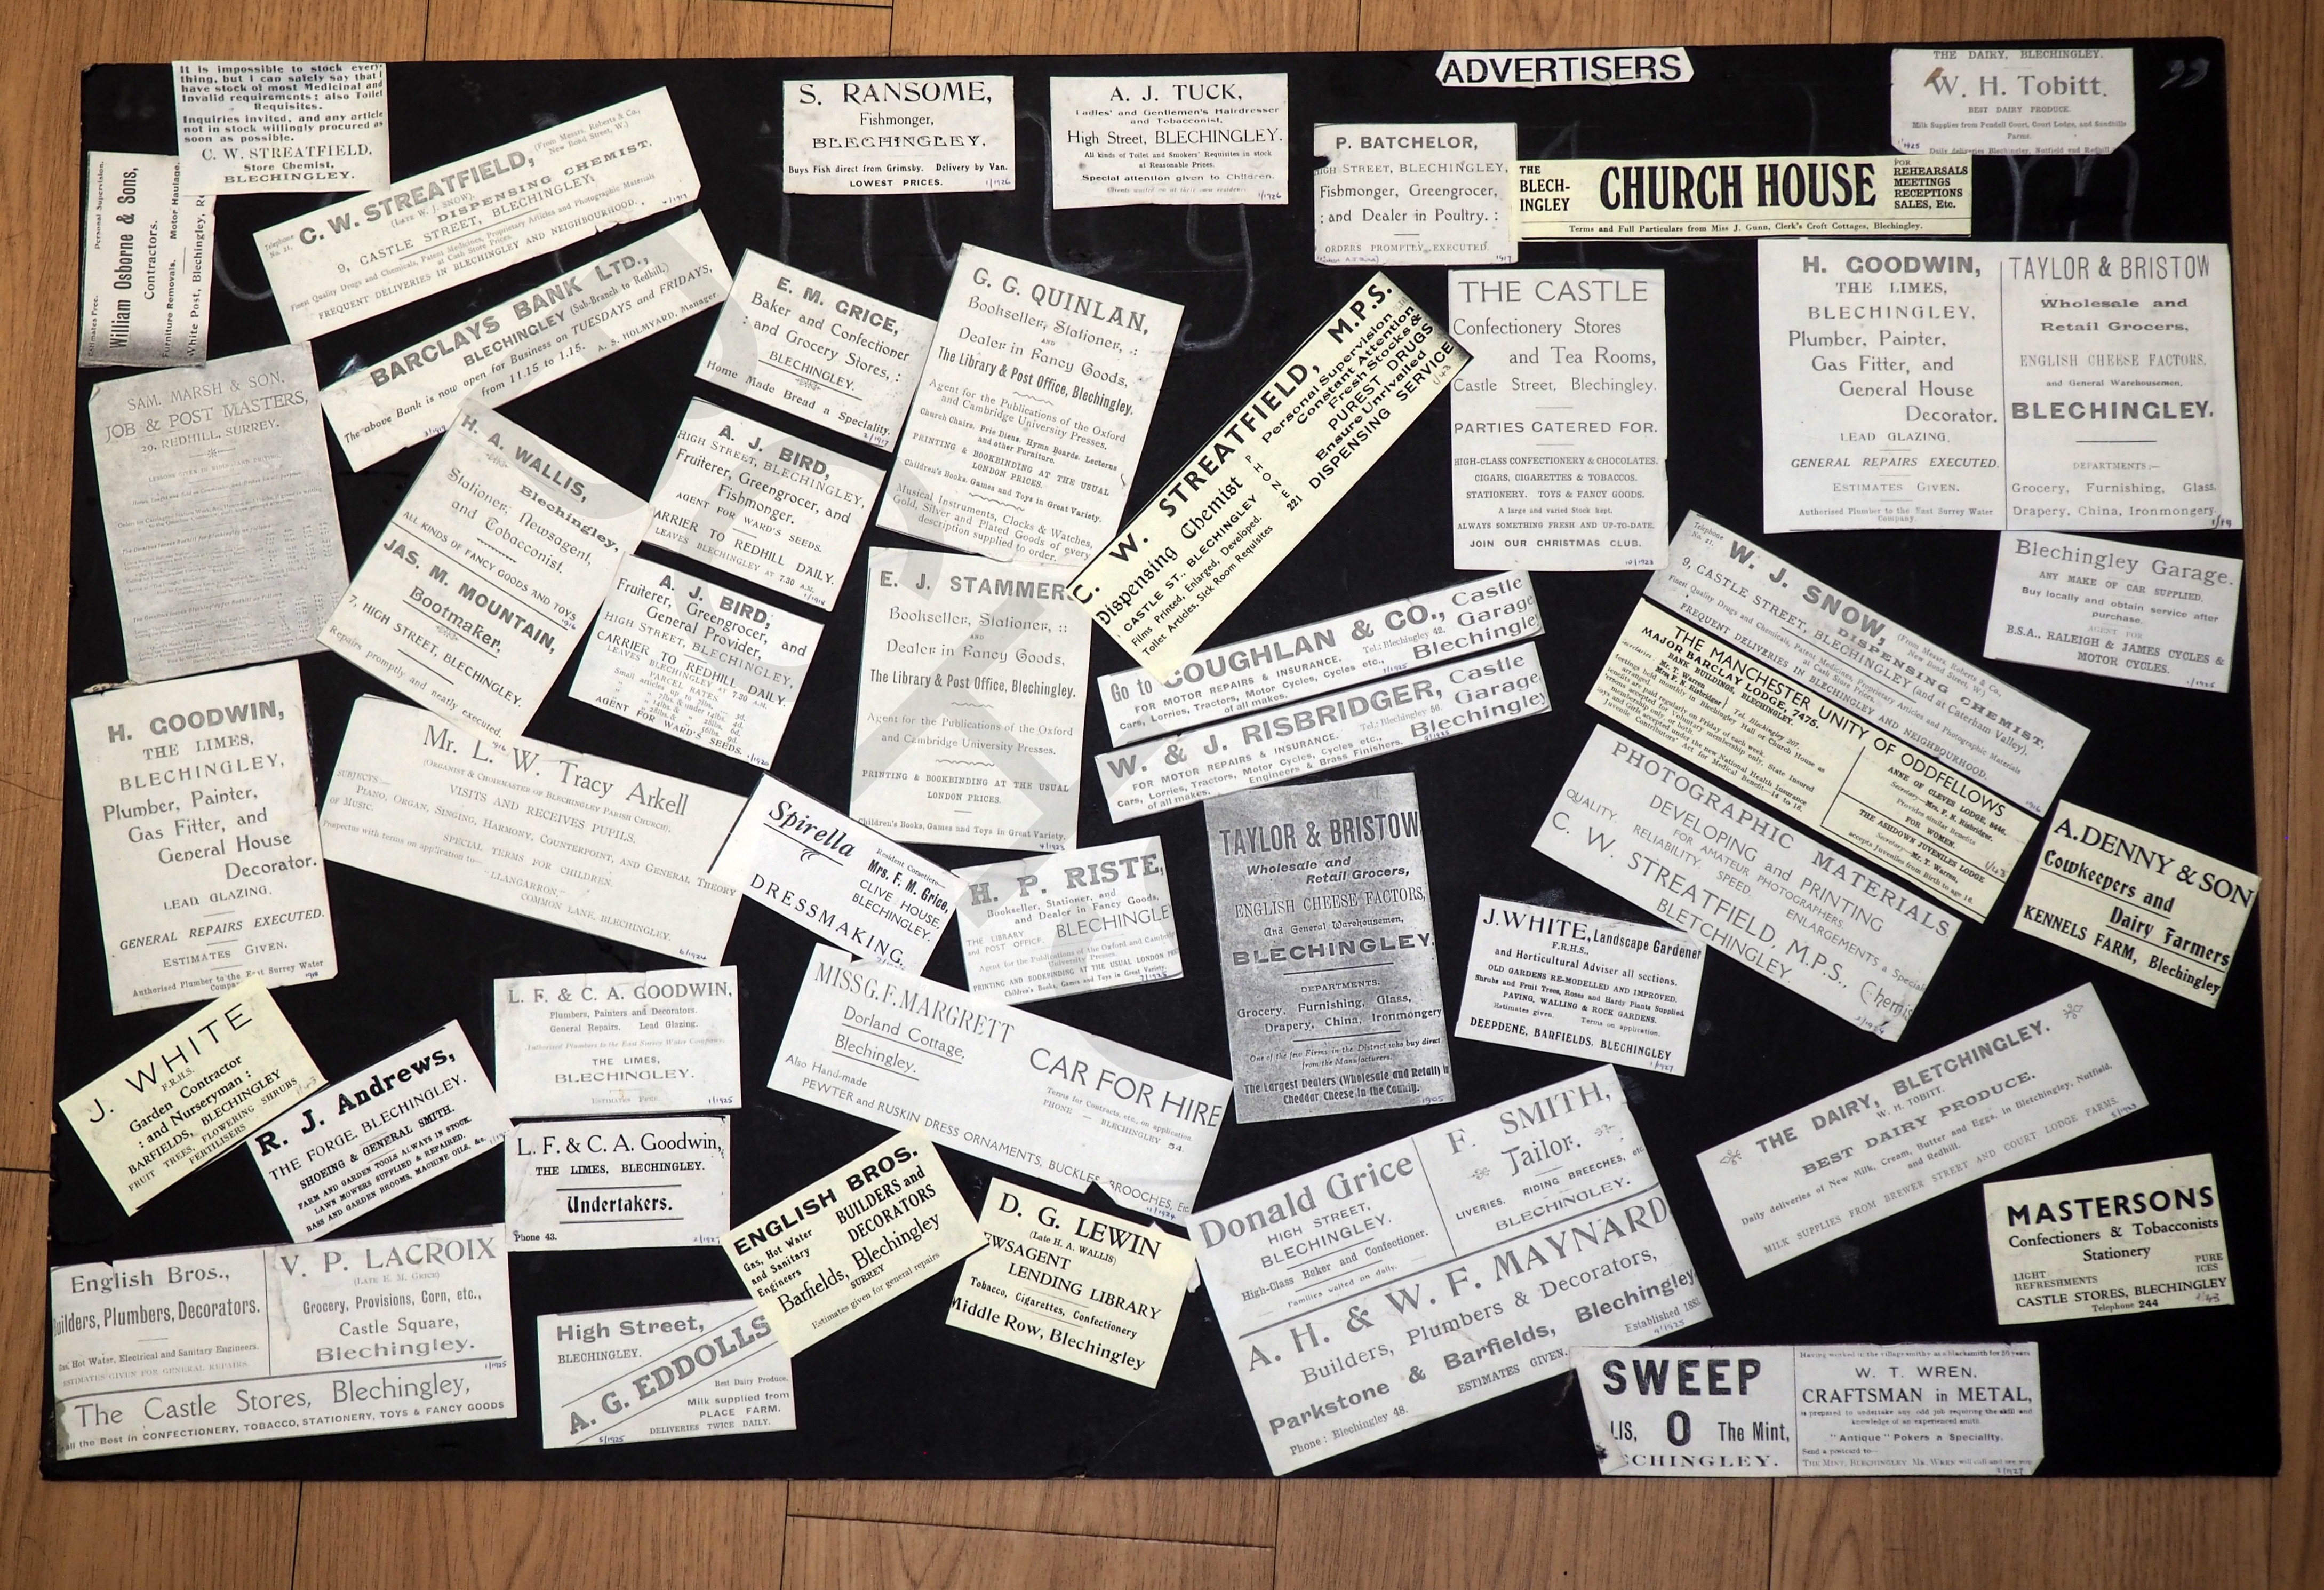 ADVERTISERS
It is impossible to stock every-
thing, but I can safely say that I
have stock of most Medicinal and
Invalid requirements; also Toilet
Requisites.
Inquiries invited, and any article
not in stock willingly procured as
soon as possible.
C. W. STREATFIELD,
Store Chemist,
BLECHINGLEY.
Estimates Free. Personal Supervision.
William Osborne & Sons,
Contractors.
Furniture Removals. Motor Haulage.
White Post, Blechingley,
Telephone No. 21.
C. W. STREATFIELD,
(From Messrs. Roberts & Co., New Bond Street, W.)
(LATE W. J. SNOW),
DISPENSING CHEMIST.
9, CASTLE STREET, BLECHINGLEY.
Finest Quality Drugs and Chemicals, Patent Medicines, Proprietary Articles and Photographic Materials
at Cash Store Prices.
FREQUENT DELIVERIES IN BLECHINGLEY AND NEIGHBOURHOOD.
BARCLAYS BANK LTD.,
BLECHINGLEY (Sub-Branch to Redhill.)
The above Bank is now open for Business on TUESDAYS and FRIDAYS,
from 11.15 to 1.15. A. S. HOLMYARD, Manager.
S. RANSOME,
Fishmonger,
BLECHINGLEY.
Buys Fish direct from Grimsby. Delivery by Van.
LOWEST PRICES. 1/1926
A. J. TUCK,
Ladies' and Gentlemen's Hairdresser
and Tobacconist,
High Street, BLECHINGLEY.
All kinds of Toilet and Smokers' Requisites in stock
at Reasonable Prices.
Special attention given to Children.
Clients waited on at their own residence
1/1926
P. BATCHELOR,
HIGH STREET, BLECHINGLEY,
Fishmonger, Greengrocer,
: and Dealer in Poultry. :
ORDERS PROMPTLY EXECUTED
1917
THE BLECH-
INGLEY
CHURCH HOUSE
FOR
REHEARSALS
MEETINGS
RECEPTIONS
SALES, Etc.
Terms and Full Particulars from Miss J. Gunn, Clerk's Croft Cottages, Blechingley.
THE DAIRY, BLECHINGLEY.
W. H. Tobitt.
BEST DAIRY PRODUCE.
Milk Supplies from Pendell Court, Court Lodge, and Sandhills
Farms.
Daily deliveries Blechingley, Nutfield and Redhill
1/1925
SAM. MARSH & SON,
JOB & POST MASTERS,
REDHILL, SURREY.
H. A. WALLIS,
Blechingley.
Stationer, Newsagent,
and Tobacconist.
ALL KINDS OF FANCY GOODS AND TOYS
1916
JAS. M. MOUNTAIN,
Bootmaker,
7, HIGH STREET, BLECHINGLEY.
Repairs promptly and neatly executed.
E. M. GRICE,
Baker and Confectioner
: and Grocery Stores, :
BLECHINGLEY.
Home Made Bread a Speciality.
A. J. BIRD,
HIGH STREET, BLECHINGLEY,
Fruiterer, Greengrocer, and
Fishmonger,
AGENT FOR WARD'S SEEDS.
CARRIER TO REDHILL DAILY.
LEAVES BLECHINGLEY AT 7.30 A.M.
A. J. BIRD,
Fruiterer, Greengrocer, and
General Provider,
HIGH STREET, BLECHINGLEY,
CARRIER TO REDHILL DAILY.
LEAVES BLECHINGLEY AT 7.30 A.M.
PARCEL RATES
AGENT FOR WARD'S SEEDS.
1/1920
G. G. QUINLAN,
Bookseller, Stationer, :
AND
Dealer in Fancy Goods,
The Library & Post Office, Blechingley.
Agent for the Publications of the Oxford
and Cambridge University Presses.
Church Chairs, Prie Dieus, Hymn Boards, Lecterns
and other Furniture.
PRINTING & BOOKBINDING AT THE USUAL
LONDON PRICES.
Children's Books, Games and Toys in Great Variety.
Musical Instruments, Clocks & Watches,
Gold, Silver and Plated Goods of every
description supplied to order.
E. J. STAMMERS
Bookseller, Stationer, ::
AND
Dealer in Fancy Goods,
The Library & Post Office, Blechingley.
Agent for the Publications of the Oxford
and Cambridge University Presses.
PRINTING & BOOKBINDING AT THE USUAL
LONDON PRICES.
Children's Books, Games and Toys in Great Variety.
C. W. STREATFIELD, M.P.S.
Dispensing Chemist
CASTLE ST., BLECHINGLEY
PHONE 221
Films Printed, Enlarged, Developed.
Toilet Articles, Sick Room Requisites
Personal Supervision
Constant Attention
Fresh Stocks &
PUREST DRUGS
Ensure Unrivalled
DISPENSING SERVICE
1/43
THE CASTLE
Confectionery Stores
and Tea Rooms,
Castle Street, Blechingley.
PARTIES CATERED FOR.
HIGH-CLASS CONFECTIONERY & CHOCOLATES.
CIGARS, CIGARETTES & TOBACCOS.
STATIONERY. TOYS & FANCY GOODS.
A large and varied Stock kept.
ALWAYS SOMETHING FRESH AND UP-TO-DATE.
JOIN OUR CHRISTMAS CLUB.
H. GOODWIN,
THE LIMES,
BLECHINGLEY,
Plumber, Painter,
Gas Fitter, and
General House
Decorator.
LEAD GLAZING.
GENERAL REPAIRS EXECUTED.
ESTIMATES GIVEN.
Authorised Plumber to the East Surrey Water
Company.
TAYLOR & BRISTOW
Wholesale and
Retail Grocers,
ENGLISH CHEESE FACTORS,
and General Warehousemen,
BLECHINGLEY.
DEPARTMENTS:—
Grocery, Furnishing, Glass,
Drapery, China, Ironmongery.
Blechingley Garage.
ANY MAKE OF CAR SUPPLIED.
Buy locally and obtain service after
purchase.
AGENT FOR
B.S.A., RALEIGH & JAMES CYCLES &
MOTOR CYCLES.
1/1925
Telephone No. 21.
W. J. SNOW,
(From Messrs. Roberts & Co., New Bond Street, W.)
DISPENSING CHEMIST,
9, CASTLE STREET, BLECHINGLEY (and at Caterham Valley).
Finest Quality Drugs and Chemicals, Patent Medicines, Proprietary Articles and Photographic Materials
at Cash Store Prices.
FREQUENT DELIVERIES IN BLECHINGLEY AND NEIGHBOURHOOD.
1916
THE MANCHESTER UNITY OF ODDFELLOWS
MAJOR BARCLAY LODGE, 7475.
Mr. T. Warren
BANK BUILDINGS, BLECHINGLEY.
Mrs. F. N. Risbridger
Tel. Blechingley 207.
ANNE OF CLEVES LODGE, 8466.
Secretary—Mrs. F. N. Risbridger.
Provides similar Benefits
FOR WOMEN.
THE ASHDOWN JUVENILES LODGE
Secretary—Mr. T. Warren,
accepts Juveniles from Birth to age 16.
1/43
Go to COUGHLAN & CO., Castle
Garage
Blechingley
FOR MOTOR REPAIRS & INSURANCE. Tel.: Blechingley 42.
Cars, Lorries, Tractors, Motor Cycles, Cycles etc.,
of all makes.
W. & J. RISBRIDGER, Castle
Garage,
Blechingley
FOR MOTOR REPAIRS & INSURANCE. Tel.: Blechingley 56.
Cars, Lorries, Tractors, Motor Cycles, Cycles etc.,
of all makes. Engineers & Brass Finishers.
H. GOODWIN,
THE LIMES,
BLECHINGLEY,
Plumber, Painter,
Gas Fitter, and
General House
Decorator.
LEAD GLAZING.
GENERAL REPAIRS EXECUTED.
ESTIMATES GIVEN.
Authorised Plumber to the East Surrey Water
Mr. L. W. Tracy Arkell
(ORGANIST & CHOIRMASTER OF BLECHINGLEY PARISH CHURCH).
VISITS AND RECEIVES PUPILS.
SUBJECTS:—
PIANO, ORGAN, SINGING, HARMONY, COUNTERPOINT, AND GENERAL THEORY
OF MUSIC.
SPECIAL TERMS FOR CHILDREN.
Prospectus with terms on application to—
"LLANGARRON,"
COMMON LANE, BLECHINGLEY.
6/1924
Spirella
Resident Corsetiere—
Mrs. F. M. Grice,
CLIVE HOUSE,
BLECHINGLEY.
DRESSMAKING.
H. P. RISTE,
Bookseller, Stationer, and
and Dealer in Fancy Goods,
THE LIBRARY
and POST OFFICE,
BLECHINGLE
Agent for the Publications of the Oxford and Cambridge
University Presses.
PRINTING AND BOOKBINDING AT THE USUAL LONDON
Children's Books, Games and Toys in Great Variety.
TAYLOR & BRISTOW
Wholesale and
Retail Grocers,
ENGLISH CHEESE FACTORS,
And General Warehousemen,
BLECHINGLEY.
DEPARTMENTS.
Grocery, Furnishing, Glass,
Drapery, China, Ironmongery
One of the few Firms in the District who buy direct
from the Manufacturers.
The Largest Dealers (Wholesale and Retail) in
Cheddar Cheese in the County.
1905
PHOTOGRAPHIC MATERIALS
DEVELOPING and PRINTING
FOR AMATEUR PHOTOGRAPHERS.
QUALITY. RELIABILITY. SPEED
ENLARGEMENTS a Special
C. W. STREATFIELD, M.P.S., Chemis
BLETCHINGLEY.
A. DENNY & SON
Cowkeepers and
Dairy Farmers
KENNELS FARM, Blechingley
J. WHITE, Landscape Gardener
F.R.H.S.,
and Horticultural Adviser all sections.
OLD GARDENS RE-MODELLED AND IMPROVED.
Shrubs and Fruit Trees, Roses and Hardy Plants Supplied
PAVING, WALLING & ROCK GARDENS.
Estimates given. Terms on application.
DEEPDENE, BARFIELDS, BLECHINGLEY
1/1927
J. WHITE
F.R.H.S.
Garden Contractor
: and Nurseryman :
BARFIELDS, BLECHINGLEY
FRUIT TREES, FLOWERING SHRUBS
FERTILISERS
R. J. Andrews,
THE FORGE, BLECHINGLEY.
SHOEING & GENERAL SMITH.
FARM AND GARDEN TOOLS ALWAYS IN STOCK.
LAWN MOWERS SUPPLIED & REPAIRED.
BASS AND GARDEN BROOMS, MACHINE OILS, &c.
L. F. & C. A. GOODWIN,
Plumbers, Painters and Decorators.
General Repairs. Lead Glazing.
Authorised Plumbers to the East Surrey Water Company.
THE LIMES,
BLECHINGLEY.
ESTIMATES FREE.
1/1925
L. F. & C. A. Goodwin,
THE LIMES, BLECHINGLEY.
Undertakers.
Phone 43.
MISS G. F. MARGRETT
Dorland Cottage,
Blechingley.
CAR FOR HIRE
Terms for Contracts, etc., on application.
PHONE — BLECHINGLEY 54
Also Hand-made
PEWTER and RUSKIN DRESS ORNAMENTS, BUCKLES, BROOCHES, Etc
THE DAIRY, BLETCHINGLEY.
W. H. TOBITT.
BEST DAIRY PRODUCE.
Daily deliveries of New Milk, Cream, Butter and Eggs, in Bletchingley, Nutfield,
and Redhill.
MILK SUPPLIES FROM BREWER STREET AND COURT LODGE FARMS.
English Bros.,
uilders, Plumbers, Decorators.
Gas, Hot Water, Electrical and Sanitary Engineers.
ESTIMATES GIVEN FOR GENERAL REPAIRS.
V. P. LACROIX
(LATE E. M. GRICE)
Grocery, Provisions, Corn, etc.,
Castle Square,
Blechingley.
1/1925
The Castle Stores, Blechingley,
all the Best in CONFECTIONERY, TOBACCO, STATIONERY, TOYS & FANCY GOODS
High Street,
BLECHINGLEY.
A. G. EDDOLLS
Best Dairy Produce.
Milk supplied from
PLACE FARM.
DELIVERIES TWICE DAILY.
5/1925
ENGLISH BROS.
BUILDERS and
DECORATORS
Gas, Hot Water
and Sanitary
Engineers
Barfields, Blechingley
SURREY
Estimates given for general repairs
D. G. LEWIN
(Late H. A. WALLIS)
EWSAGENT
LENDING LIBRARY
Tobacco, Cigarettes, Confectionery
Middle Row, Blechingley
Donald Grice
HIGH STREET,
BLECHINGLEY.
High-Class Baker and Confectioner.
Families waited on daily.
F. SMITH,
Tailor.
LIVERIES, RIDING BREECHES, etc.
BLECHINGLEY.
A. H. & W. F. MAYNARD
Builders, Plumbers & Decorators,
Parkstone & Barfields, Blechingley
Phone: Blechingley 48. ESTIMATES GIVEN. Established 188
MASTERSONS
Confectioners & Tobacconists
Stationery
LIGHT
REFRESHMENTS
PURE
ICES
CASTLE STORES, BLECHINGLEY
Telephone 244
SWEEP
LIS, O The Mint,
CHINGLEY.
Having worked in the village smithy as a Blacksmith for 20 years
W. T. WREN,
CRAFTSMAN in METAL,
is prepared to undertake any odd job requiring the skill and
knowledge of an experienced smith
"Antique" Pokers a Speciality.
Send a postcard to—
THE MINT, BLECHINGLEY. MR. WREN will call and see you